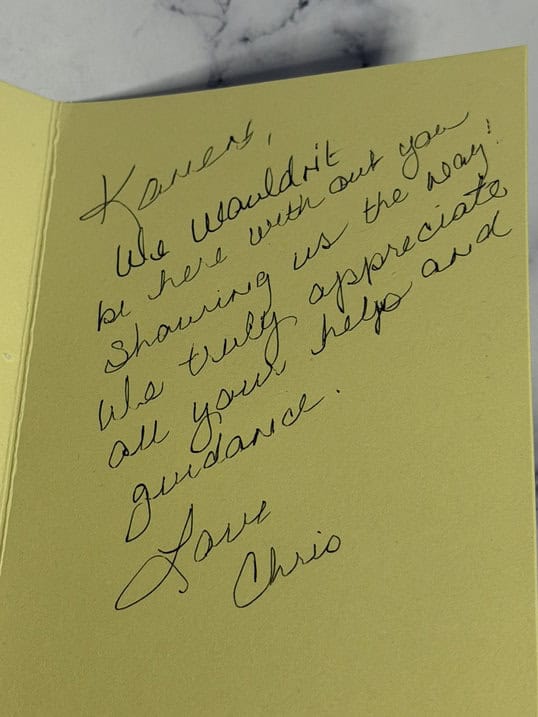 Karen,
We wouldn't
be here with out you
Showing us the way!
We truly appreciate
all your help and
guidance.
Love
Chris